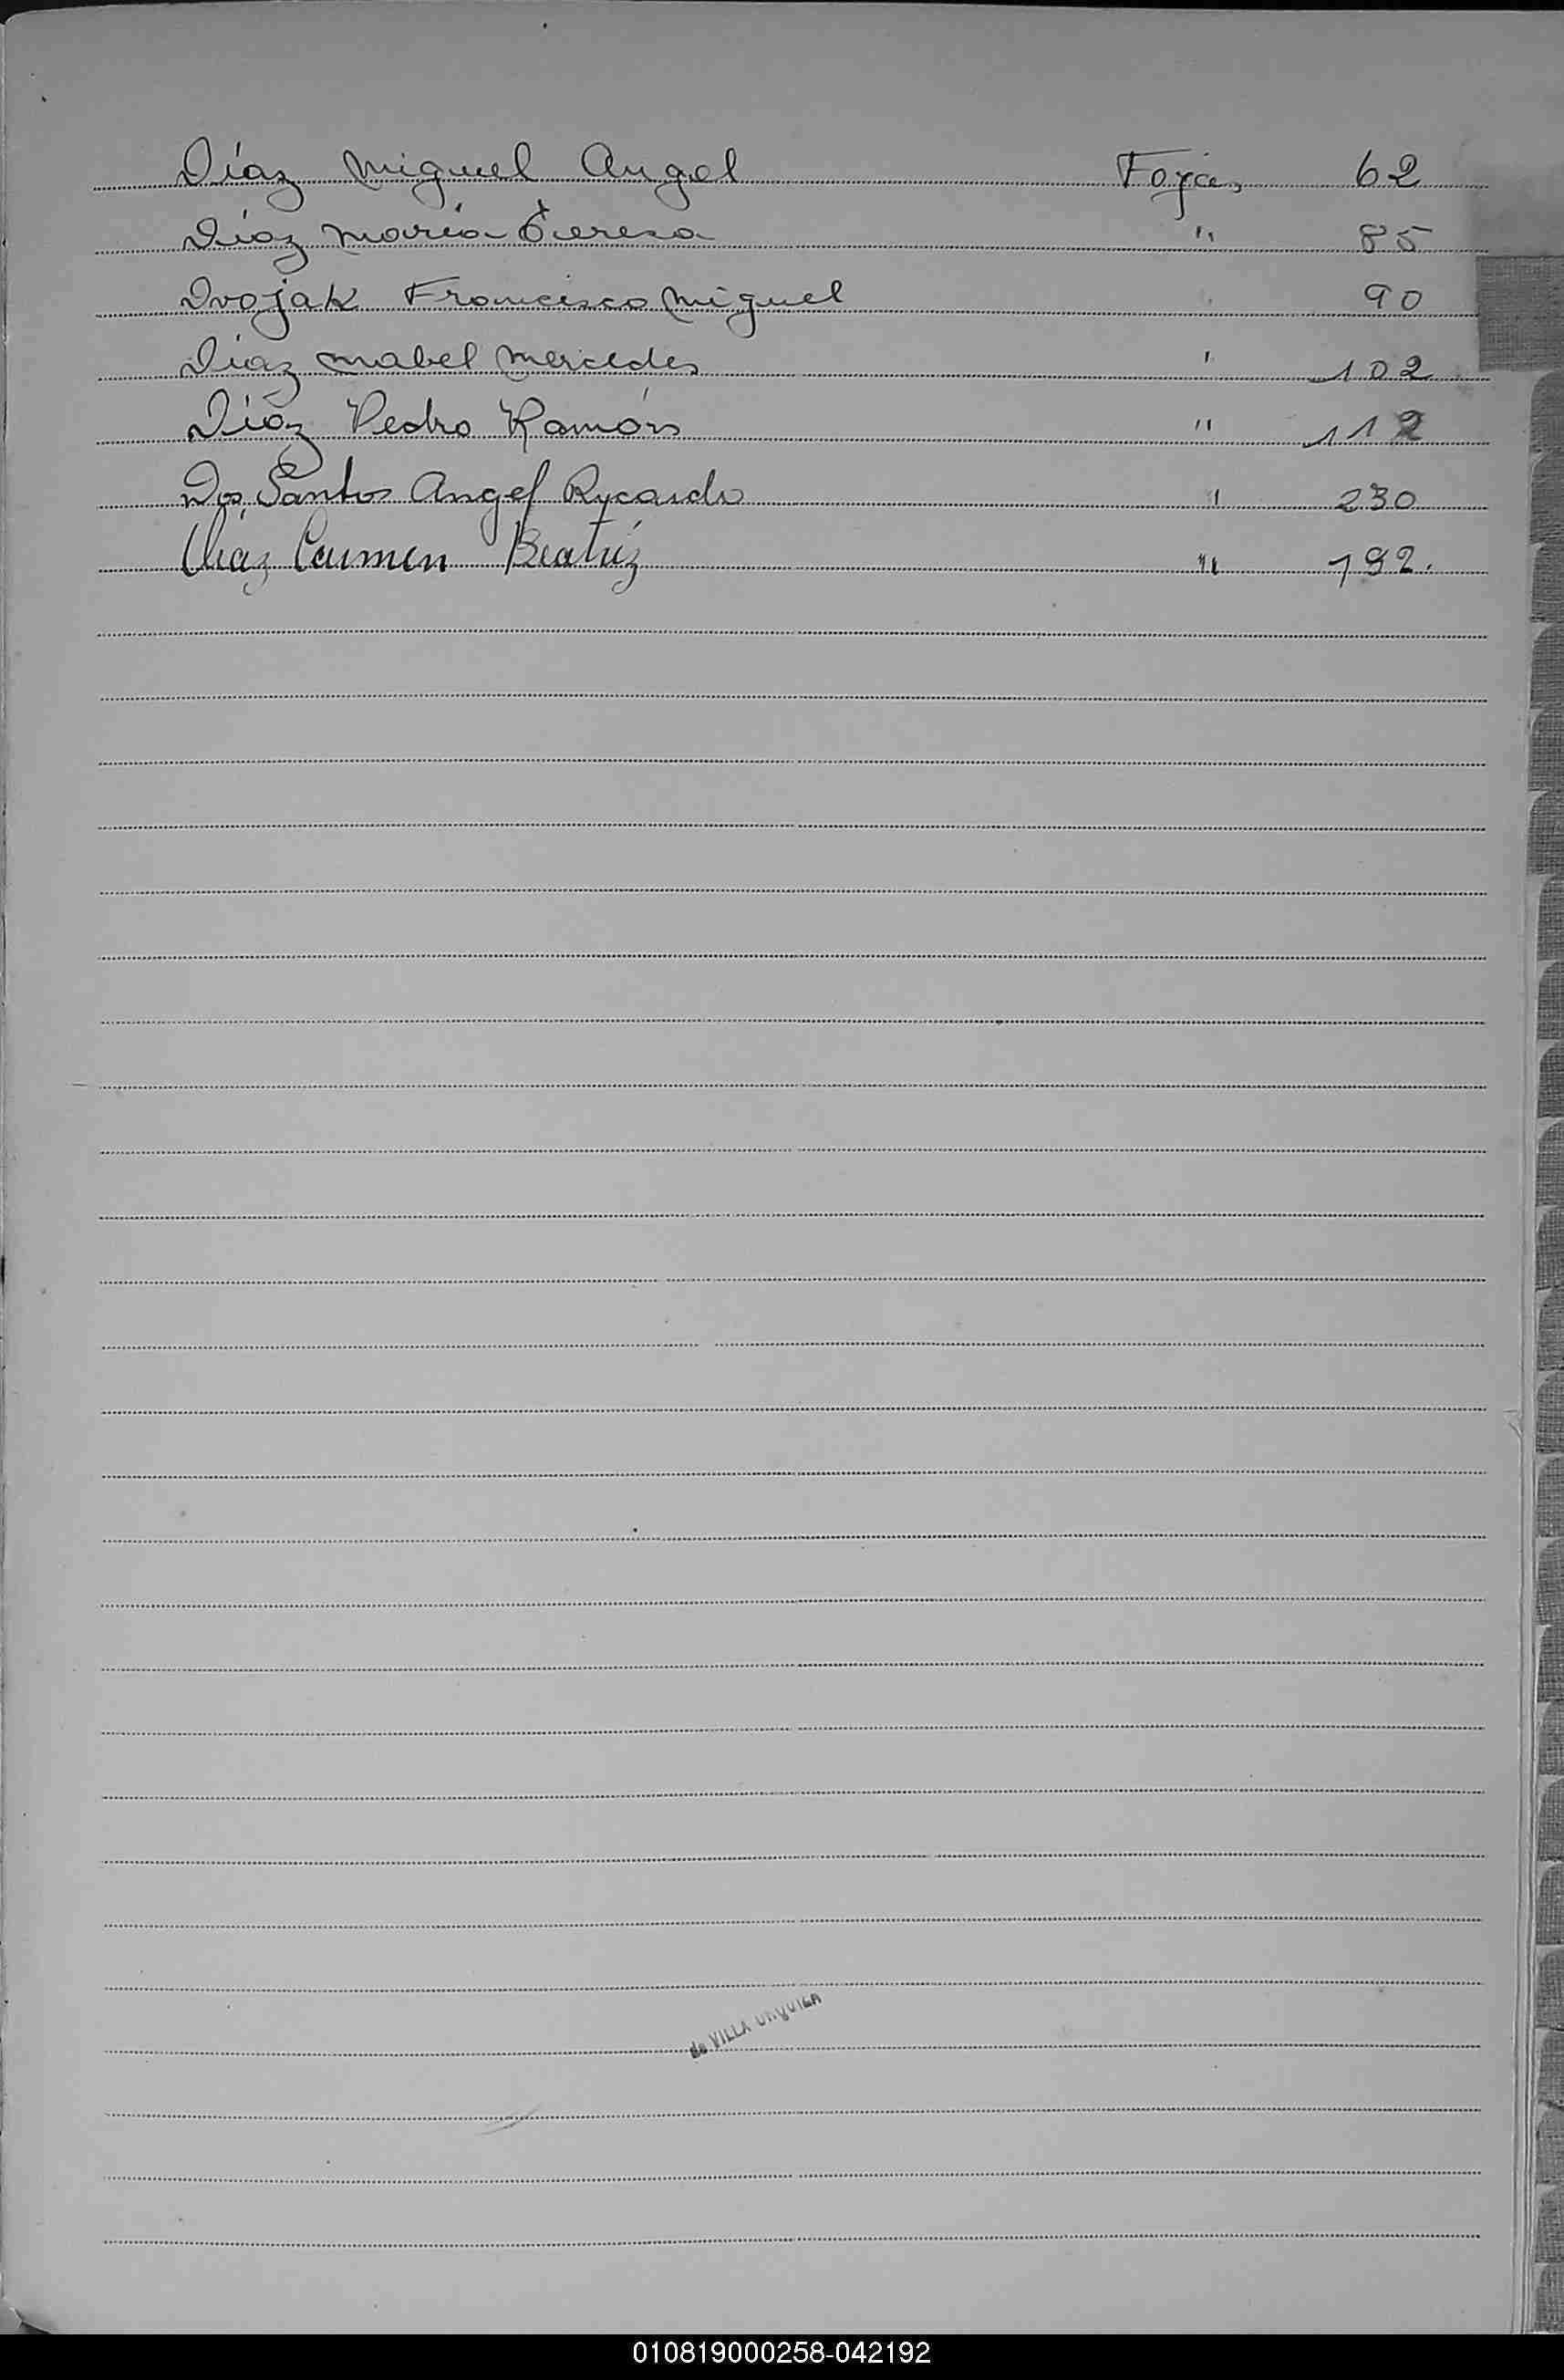 Díaz Miguel Angel Fojas 62
Díaz María Teresa " 85
Dvojak Francisco Miguel 90
Díaz Mabel Mercedes " 102
Díaz Pedro Ramón " 112
Dos Santos Angel Rycardo " 230
Díaz Carmen Beatríz " 192.
de VILLA URQUIZA
010819000258-042192